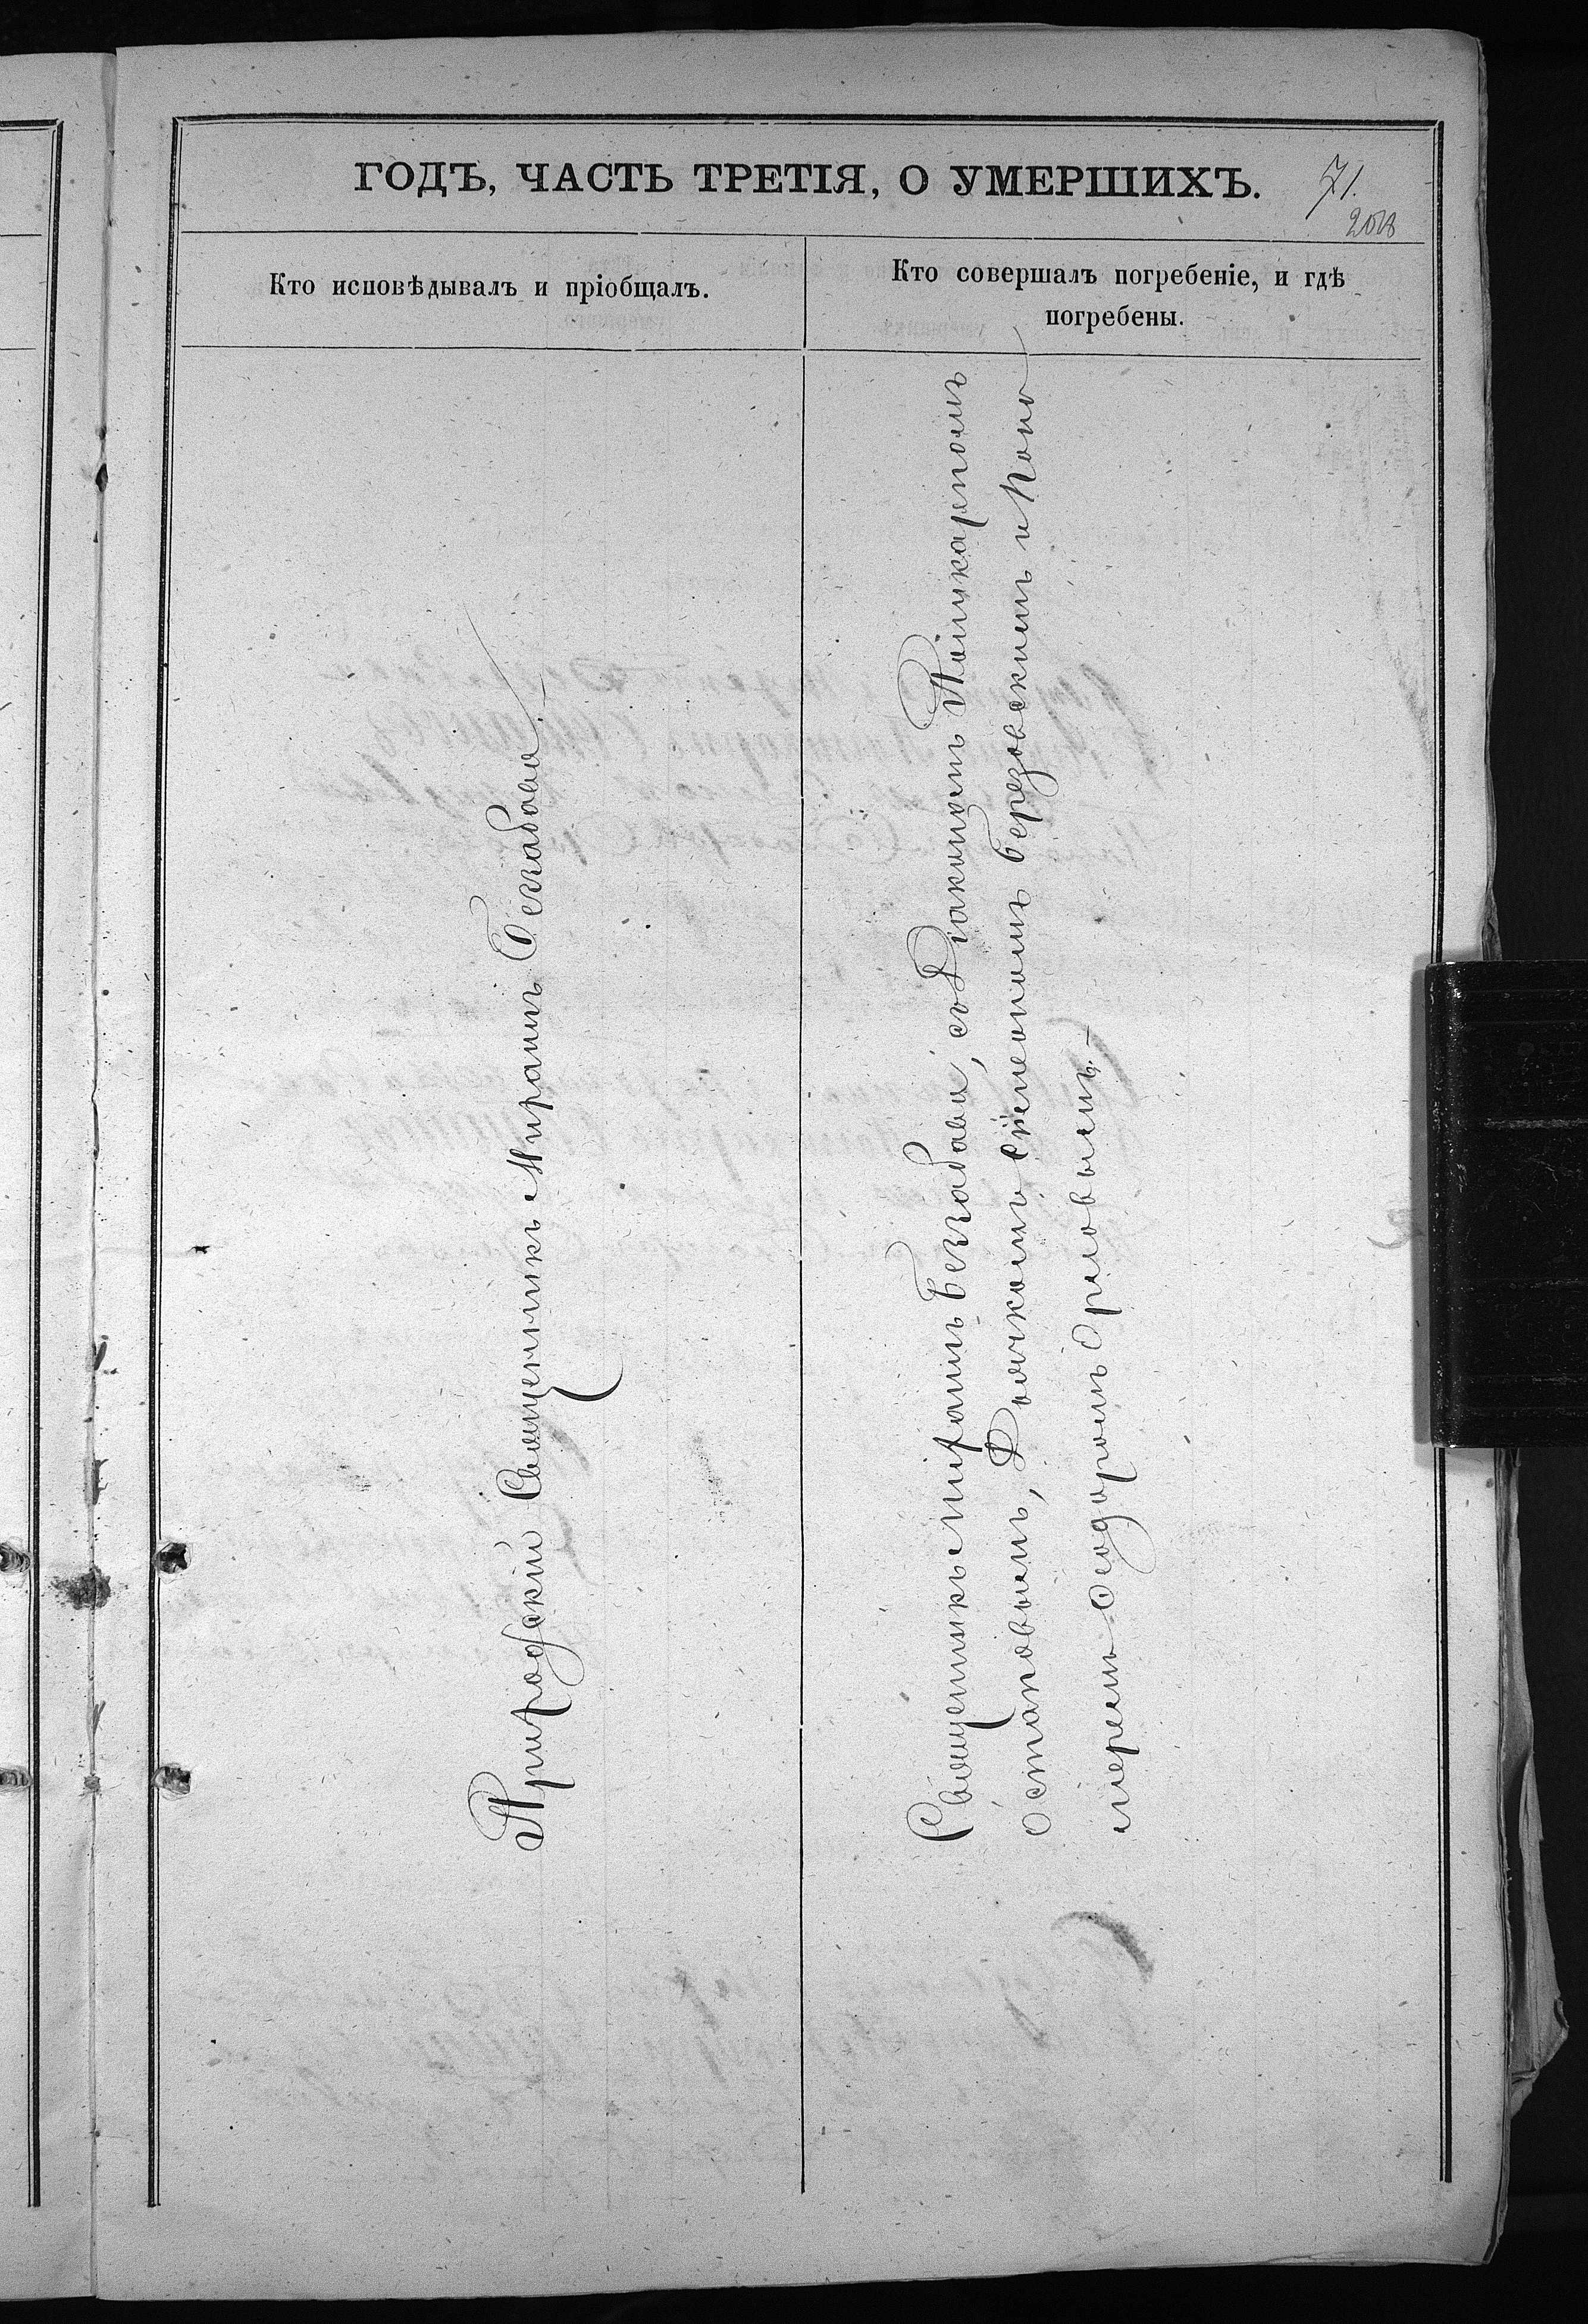 ГОДЪ, ЧАСТЬ ТРЕТІЯ, О УМЕРШИХЪ.
71.
Кто исповѣдывалъ и пріобщалъ.
Кто совершалъ погребеніе, и гдѣ
погребены.
Приходскій Священникъ Мираміъ Беззабава
Священникъ Беззабава, съ Діакономъ Поликарпомъ
Остаповымъ, Дьячкомъ Симеономъ Березовскимъ и Поно
маремъ Ѳеодоромъ Орловымъ.